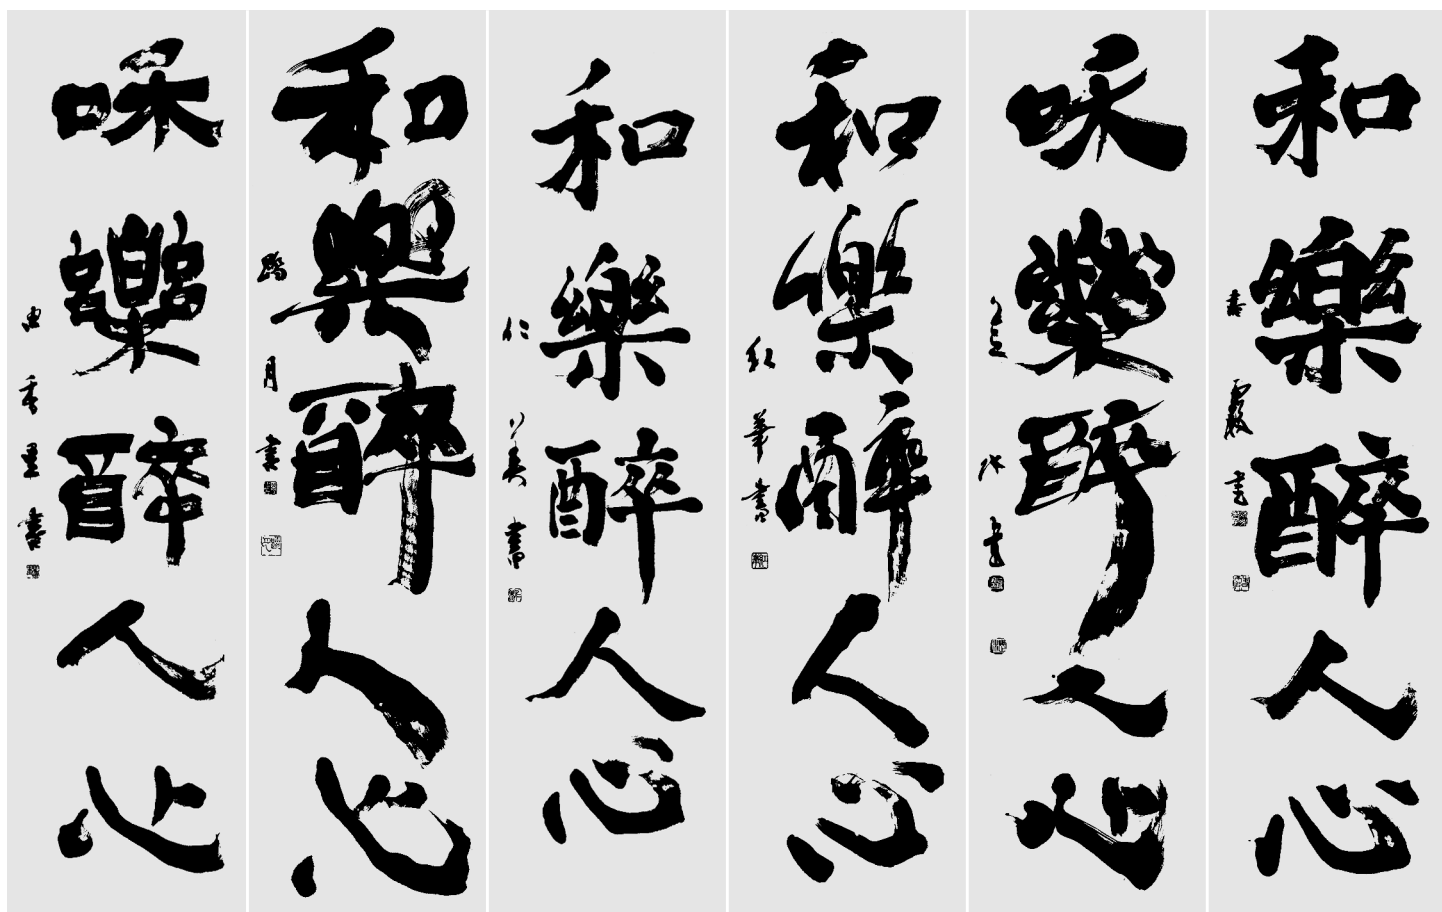 和樂醉人心
和樂醉人心
和樂醉人心
紅華書
和樂醉人心
和樂醉人心
月書
和樂醉人心